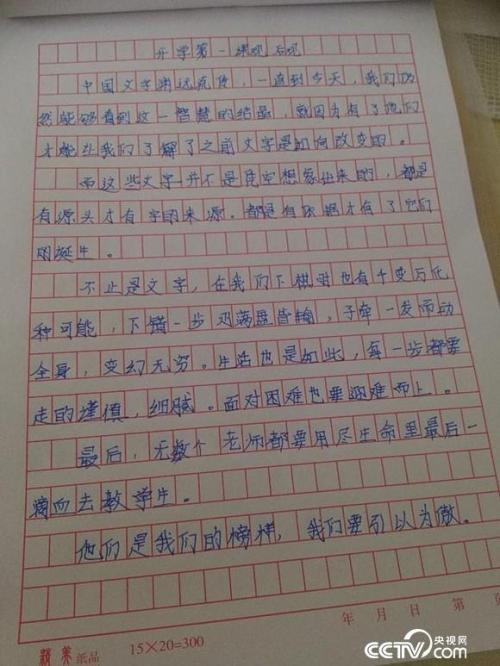 开学第一课观后观
中国文字渊远流传，一直到今天，我们仍
然能够看到这一智慧的结晶，就因为有了他们
才能让我们了解了之前文字是如何改变的。
而这些文字并不是凭空想象出来的，都是
有源头才有字的来源。都是有依据才有了它们
的诞生。
不止是文字，在我们下棋时也有千变万化
种可能，下错一步 满盘皆输，子牵一发而动
全身，变幻无穷。生活也是如此，每一步都要
走的谨慎，细腻。面对困难也要迎难而上。
最后，无数个老师都要用尽生命里最后一
滴血去教学生。
他们是我们的榜样，我们要引以为傲。
年 月 日 第 页
纸品 15×20=300
CCTV.com 央视网